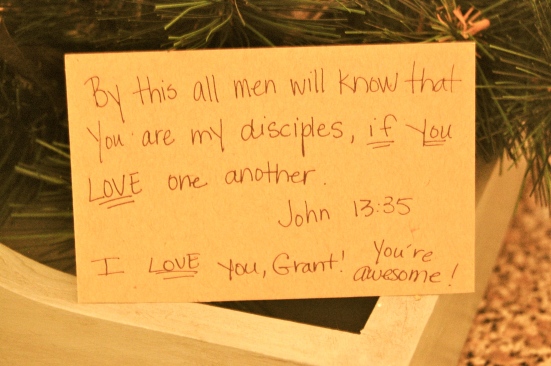 By this all men will know that
you are my disciples, if you
LOVE one another.
John 13:35
I LOVE you, Grant! You're
awesome!